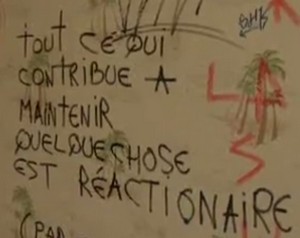 TOUT CE QUI
CONTRIBUE A
MAINTENIR
QUELQUE CHOSE
EST RÉACTIONAIRE